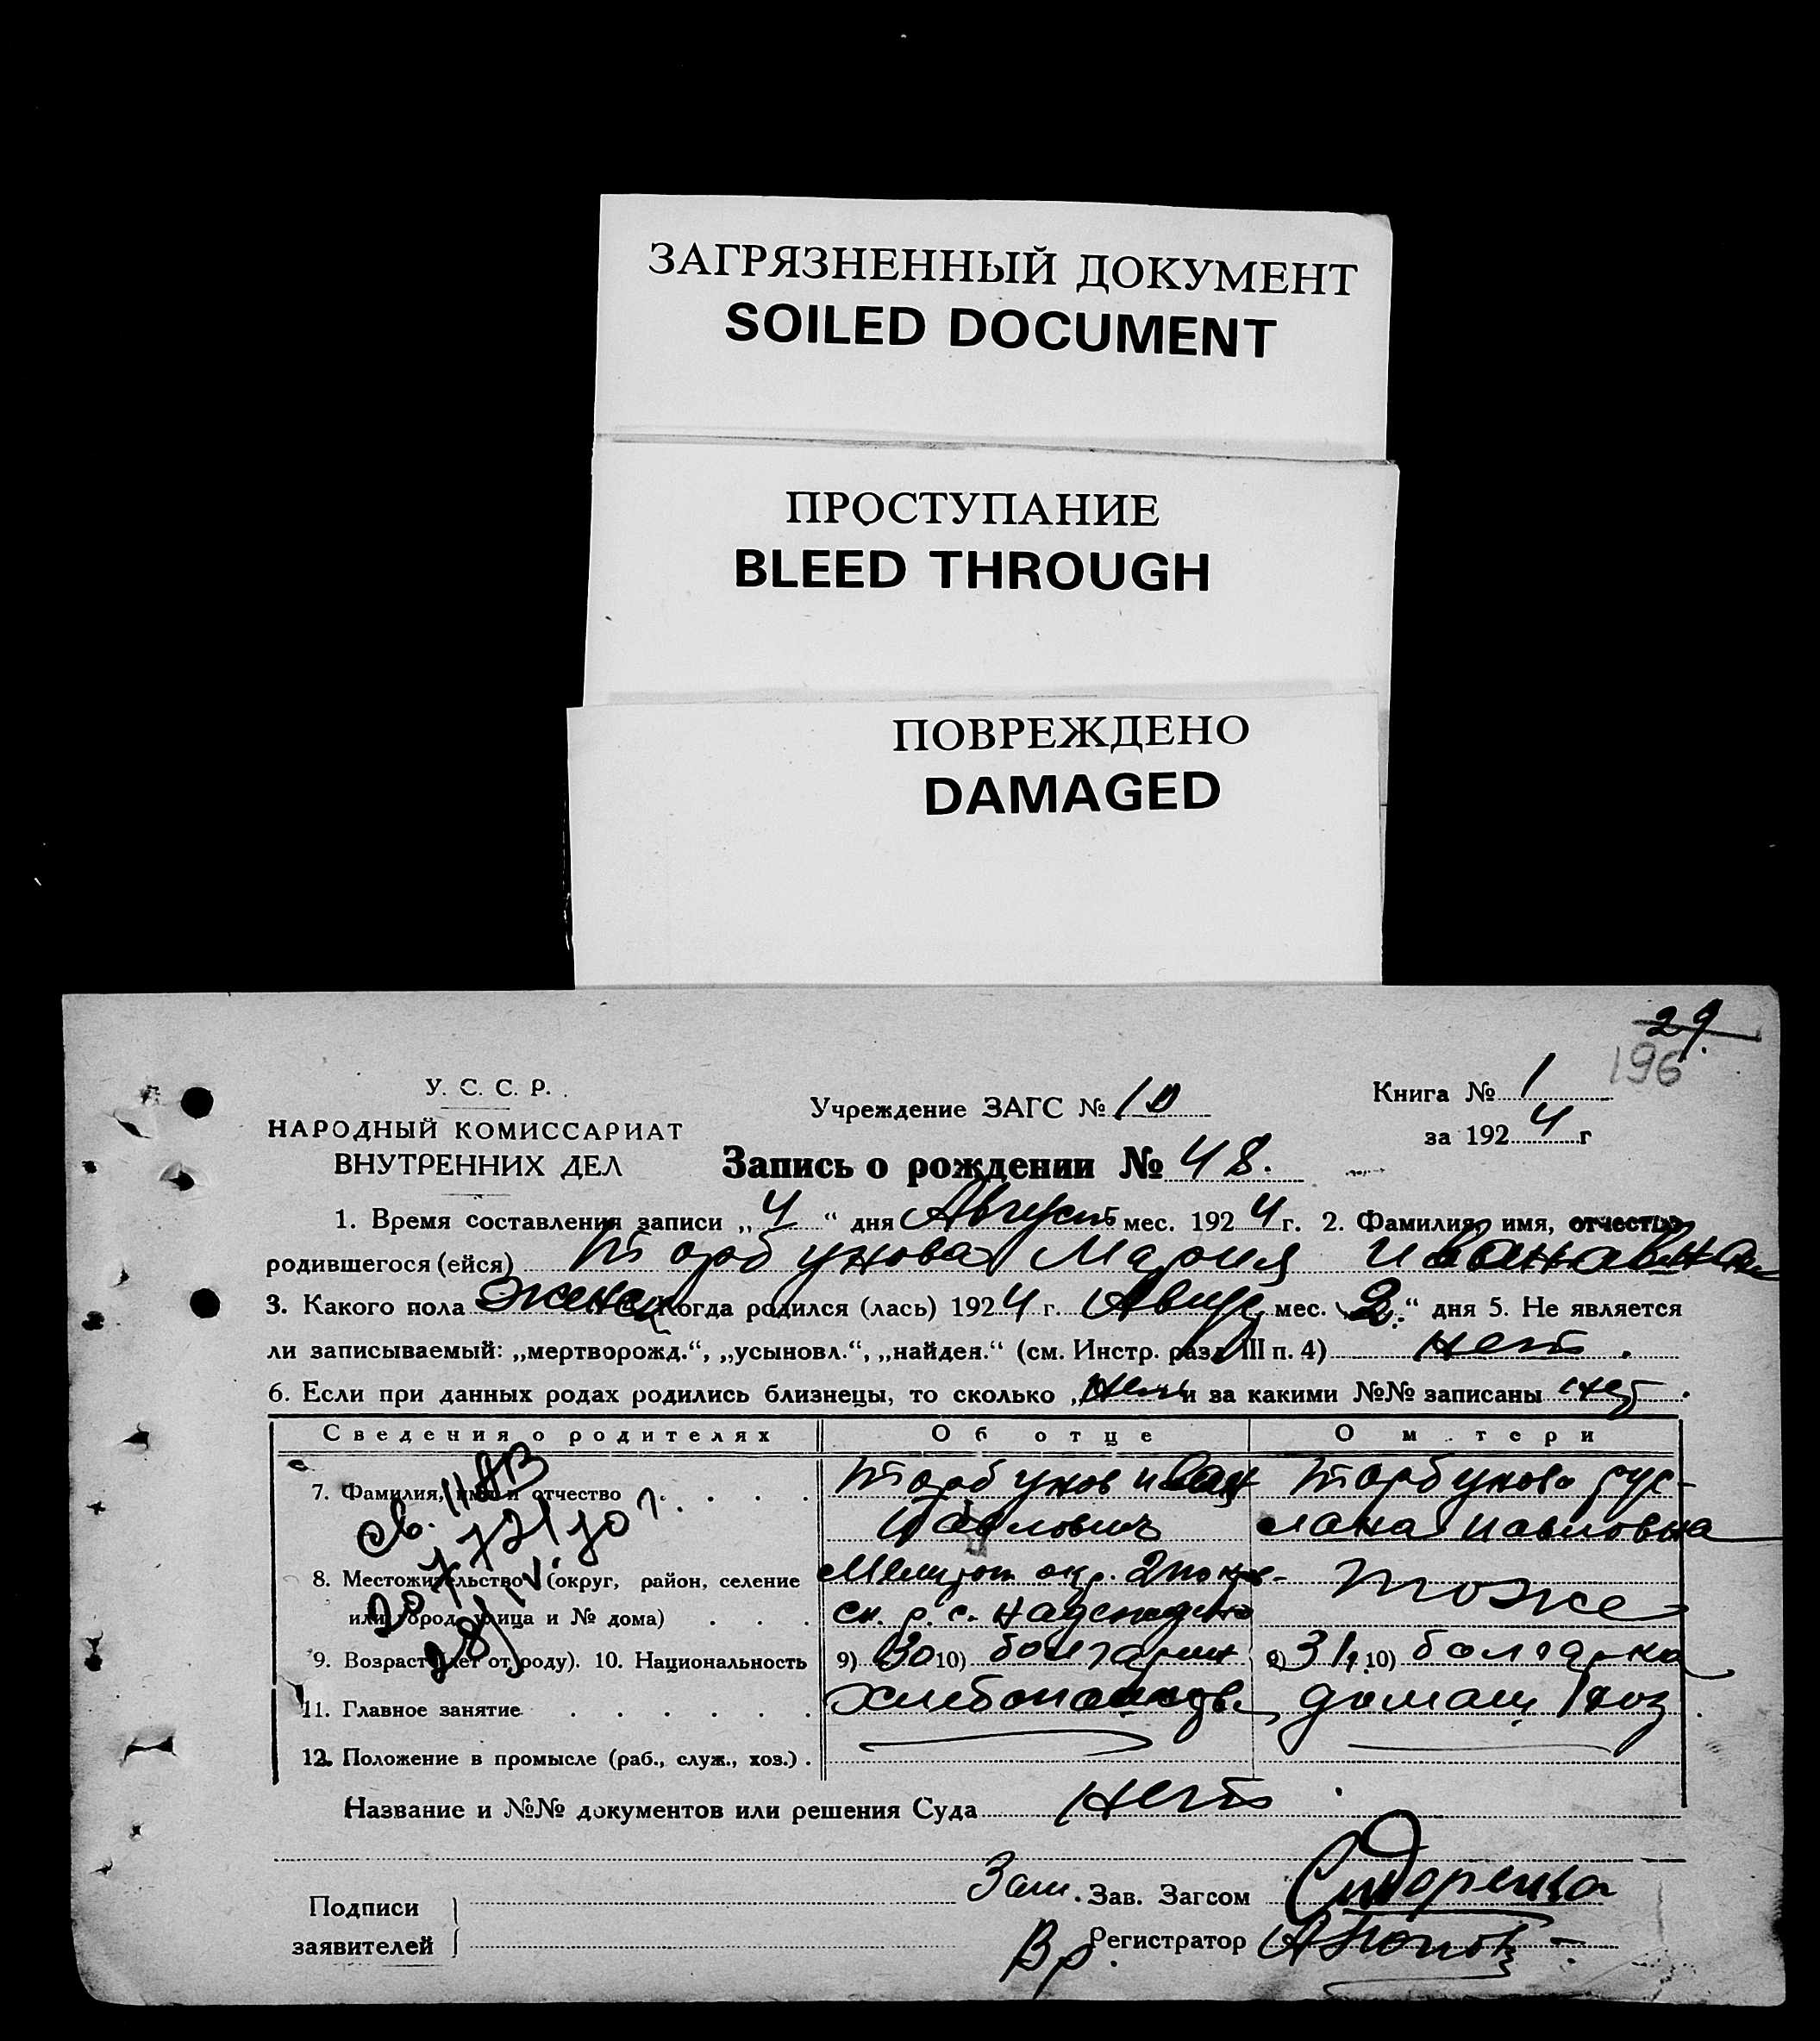 ЗАГРЯЗНЕННЫЙ ДОКУМЕНТ
SOILED DOCUMENT
ПРОСТУПАНИЕ
BLEED THROUGH
ПОВРЕЖДЕНО
DAMAGED
29.
196
У. С. С. Р.
НАРОДНЫЙ КОМИССАРИАТ
ВНУТРЕННИХ ДЕЛ
Учреждение ЗАГС № 10
Книга № 1
за 1924 г
Запись о рождении № 48.
1. Время составления записи „4“ дня Август мес. 1924 г. 2. Фамилия, имя, отчество
родившегося (ейся) Торбунова Мария Ивановна
3. Какого пола женск Когда родился (лась) 1924 г. Август мес. „2.“ дня 5. Не является
ли записываемый: „мертворожд.“, „усыновл.“, „найден.“ (см. Инстр. разд. III п. 4) нет.
6. Если при данных родах родились близнецы, то сколько „нет и за какими №№ записаны нет.
Сведения о родителях Об отце О м тери
7. Фамилия, имя и отчество Торбунов Иван Торбунова
Павлович Павловна
8. Местожительство (округ, район, селение Мелитоп. окр. тоже
или город, улица и № дома)
9. Возраст (лет от роду). 10. Национальность 9) 30 10) болгарин 9) 31 10) болгарка
11. Главное занятие домаш хоз
12. Положение в промысле (раб., служ., хоз.)
Название и №№ документов или решения Суда нет
Зам. Зав. Загсом Сидоренко
Подписи
заявителей
Вр. Регистратор